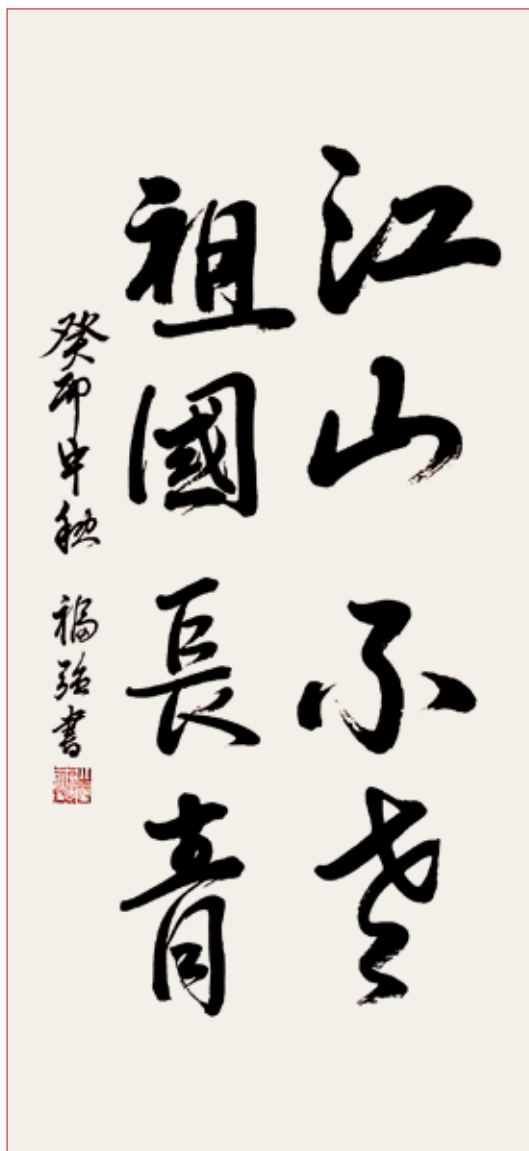 江山不老
祖國長青
癸卯中秋 福强書